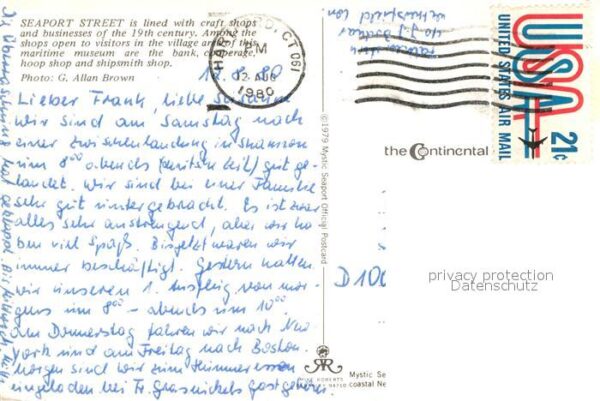 SEAPORT STREET is lined with craft shops
and businesses of the 19th century. Among the
shops open to visitors in the village area of this
maritime museum are the bank, cooperage,
hoop shop and shipsmith shop.
Photo: G. Allan Brown
12.8.80
Lieber Frank, liebe Susanne
wir sind am Samstag nach
einer Zwischenlandung in Shannon
um 8⁰⁰ abends (deutsche Zeit) gut ge-
landet. Wir sind bei einer Familie
sehr gut untergebracht. Es ist zwar
alles sehr anstrengend, aber wir ha
ben viel Spaß. Bisjetzt waren wir
immer beschäftigt. Gestern hatten
wir unseren 1. Ausflug von mor-
gens um 8⁰⁰ - abends um 10⁰⁰.
Am Donnerstag fahren wir nach New
York und am Freitag nach Boston.
Morgen sind wir zum
eingeladen bei Fr.
HARTFORD, CT 061
PM
12 AUG
1980
©1979 Mystic Seaport Official Postcard
USA
21c
UNITED STATES AIR MAIL
the Continental
D 100
privacy protection
Datenschutz
Mystic Se
coastal Ne